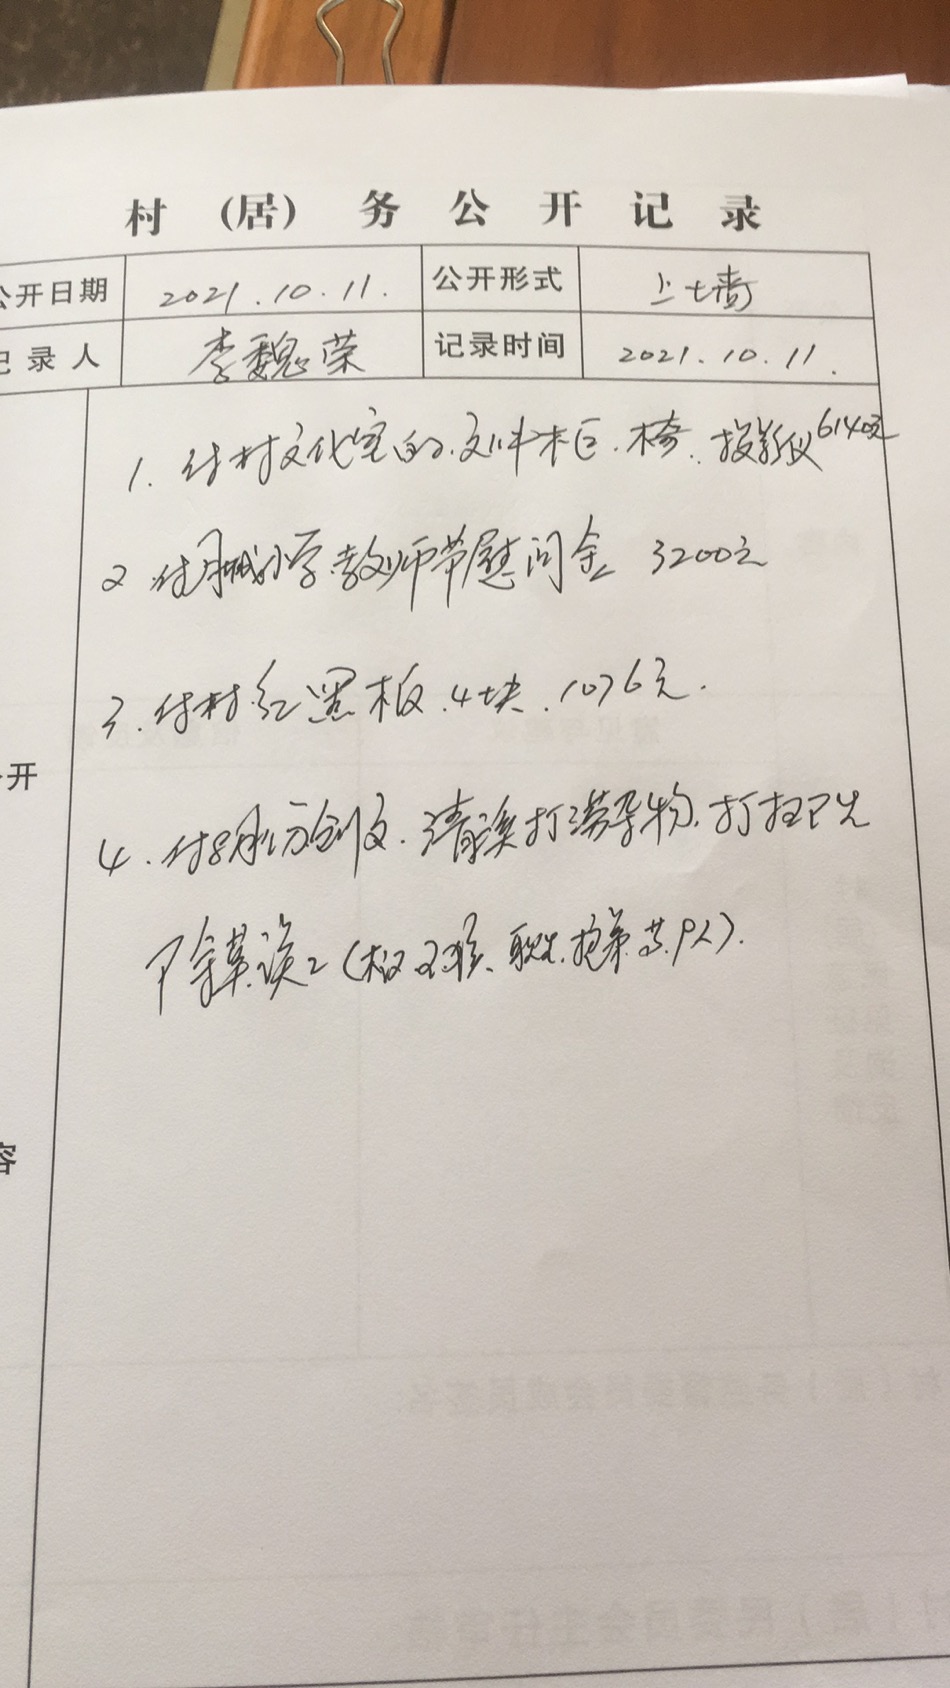 村（居）务公开记录
公开日期 2021.10.11. 公开形式 上墙
记录人 李魏荣 记录时间 2021.10.11.
1. 付村文化室的文件柜.椅.投影仪6140元
2 付月城小学教师节慰问金 3200元
3.付村红黑板.4块.1076元.
4.付8月份创文.清 打捞杂物.打扫卫生
除草 (
开
容